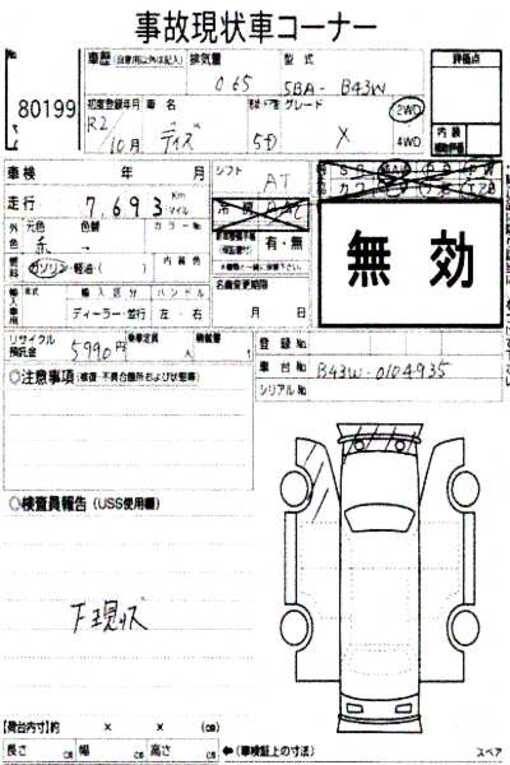 事故現状車コーナー
No.
80199
車歴 (自家用以外は記入) 排気量 型式 評価点
0.65 5BA- B43W
初度登録年月 車名 グレード 2WD
R2/10月 デイズ 5D X 4WD
内装
車検 年 月 シフト AT
走行 7,693 Km マイル
外色 元色 色替 カラーNo.
赤 → 有・無
ガソリン・軽油・( ) 内装色
名義変更期限
年式 輸入区分 ハンドル 月 日
ディーラー・並行 左・右
無効
リサイクル預託金 5990円 乗車定員 人 積載量 t 登録No.
車台No. B43W-0104935
シリアルNo.
○注意事項 (修復・不具合箇所および状態等)
○検査員報告 (USS使用欄)
【荷台内寸】約 × × (cm)
長さ cm 幅 cm 高さ cm ←(車検証上の寸法) スペア